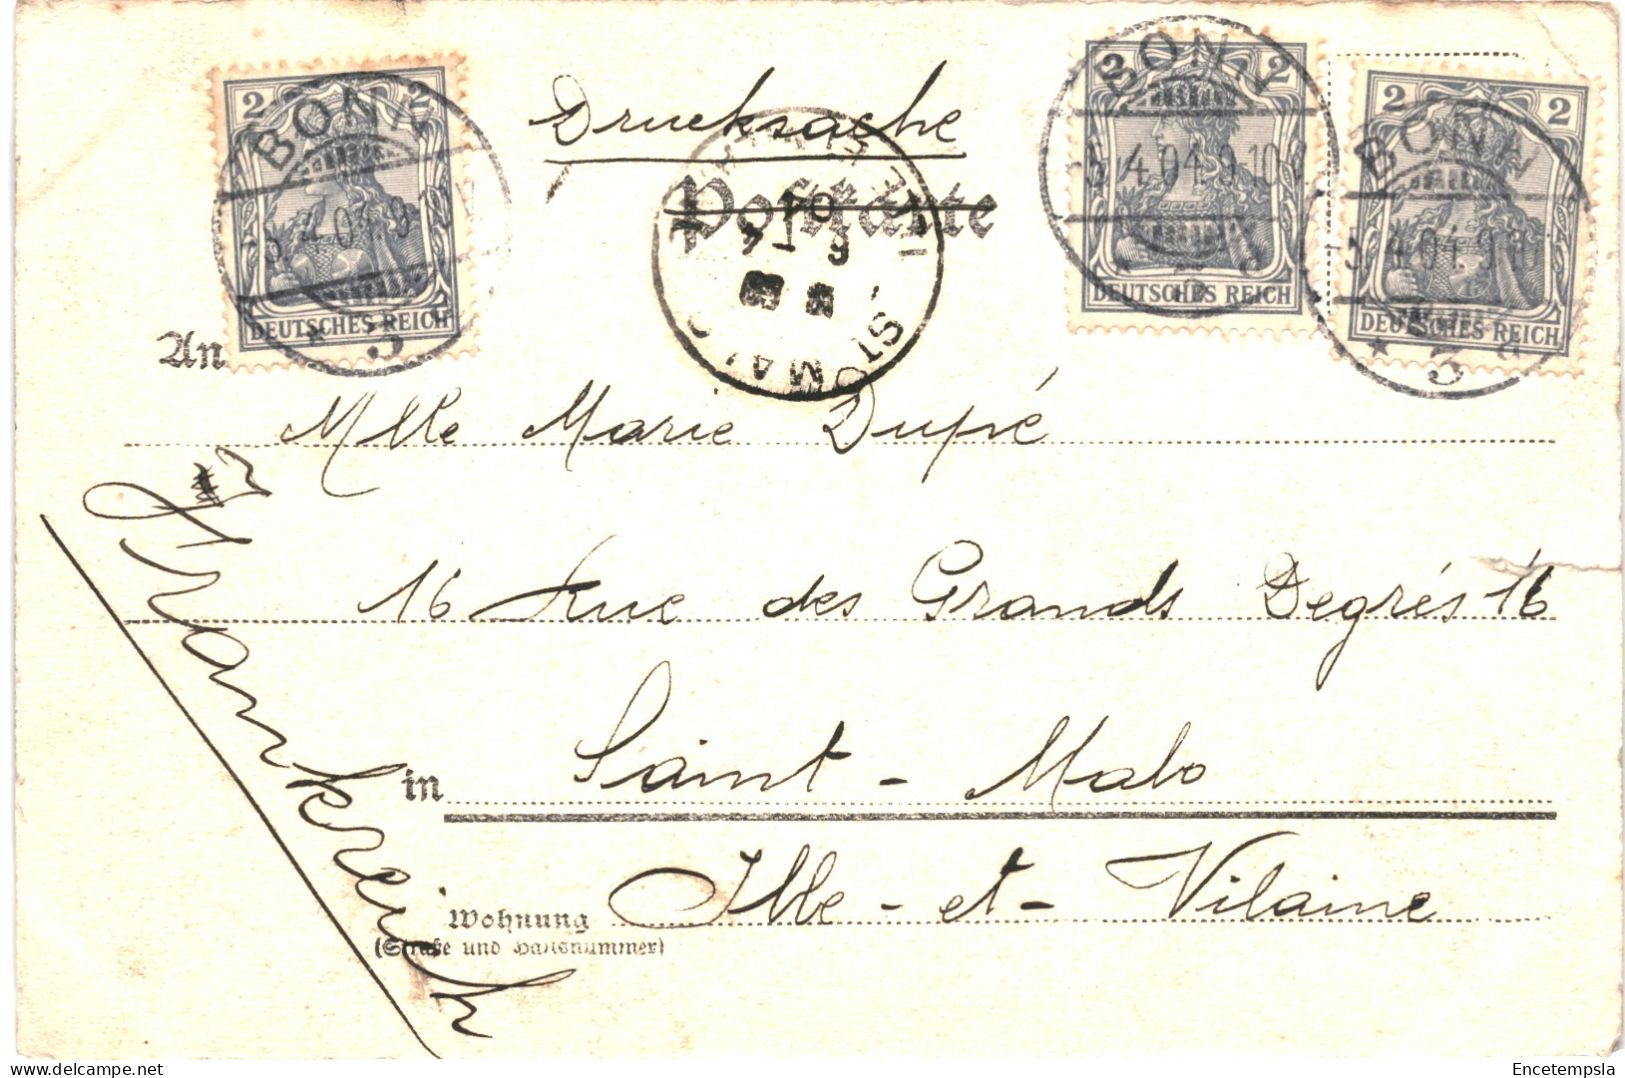 2 2
BONN
5.4.04.9
DEUTSCHES REICH
3
Drucksache
Postkarte
ST MALO
04
6 - 4
2 2
BONN
5.4.04.9-10
DEUTSCHES REICH
2 2
BONN
5.4.04.9-10
DEUTSCHES REICH
* 3 a
An
Mlle Marie Dupré
16 Rue des Grands Degrés 16
in Saint-Malo
Ille-et-Vilaine
Wohnung
(Straße und Hausnummer)
Frankreich
© www.delcampe.net
Encetempsla